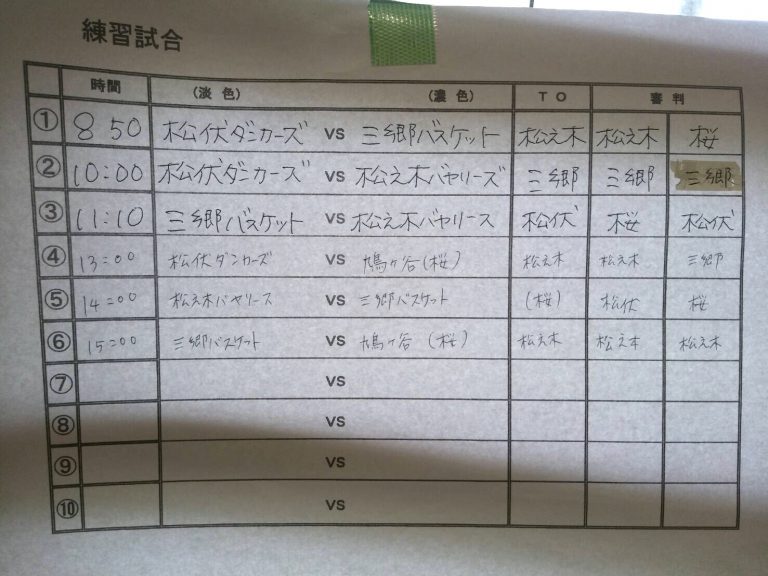 練習試合
時間 (淡色) (濃色) TO 審判
① 8 50 松伏ダンカーズ VS 三郷バスケット 松之木 松之木 桜
② 10:00 松伏ダンカーズ VS 松之木バヤリーズ 三郷 三郷 三郷
③ 11:10 三郷バスケット VS 松之木バヤリース 松伏 桜 松伏
④ 13:00 松伏ダンカーズ VS 鳩ヶ谷(桜) 松之木 松之木 三郷
⑤ 14:00 松之木バヤリース VS 三郷バスケット (桜) 松伏 桜
⑥ 15:00 三郷バスケット VS 鳩ヶ谷 (桜) 松之木 松之木 松之木
⑦ VS
⑧ VS
⑨ VS
⑩ VS